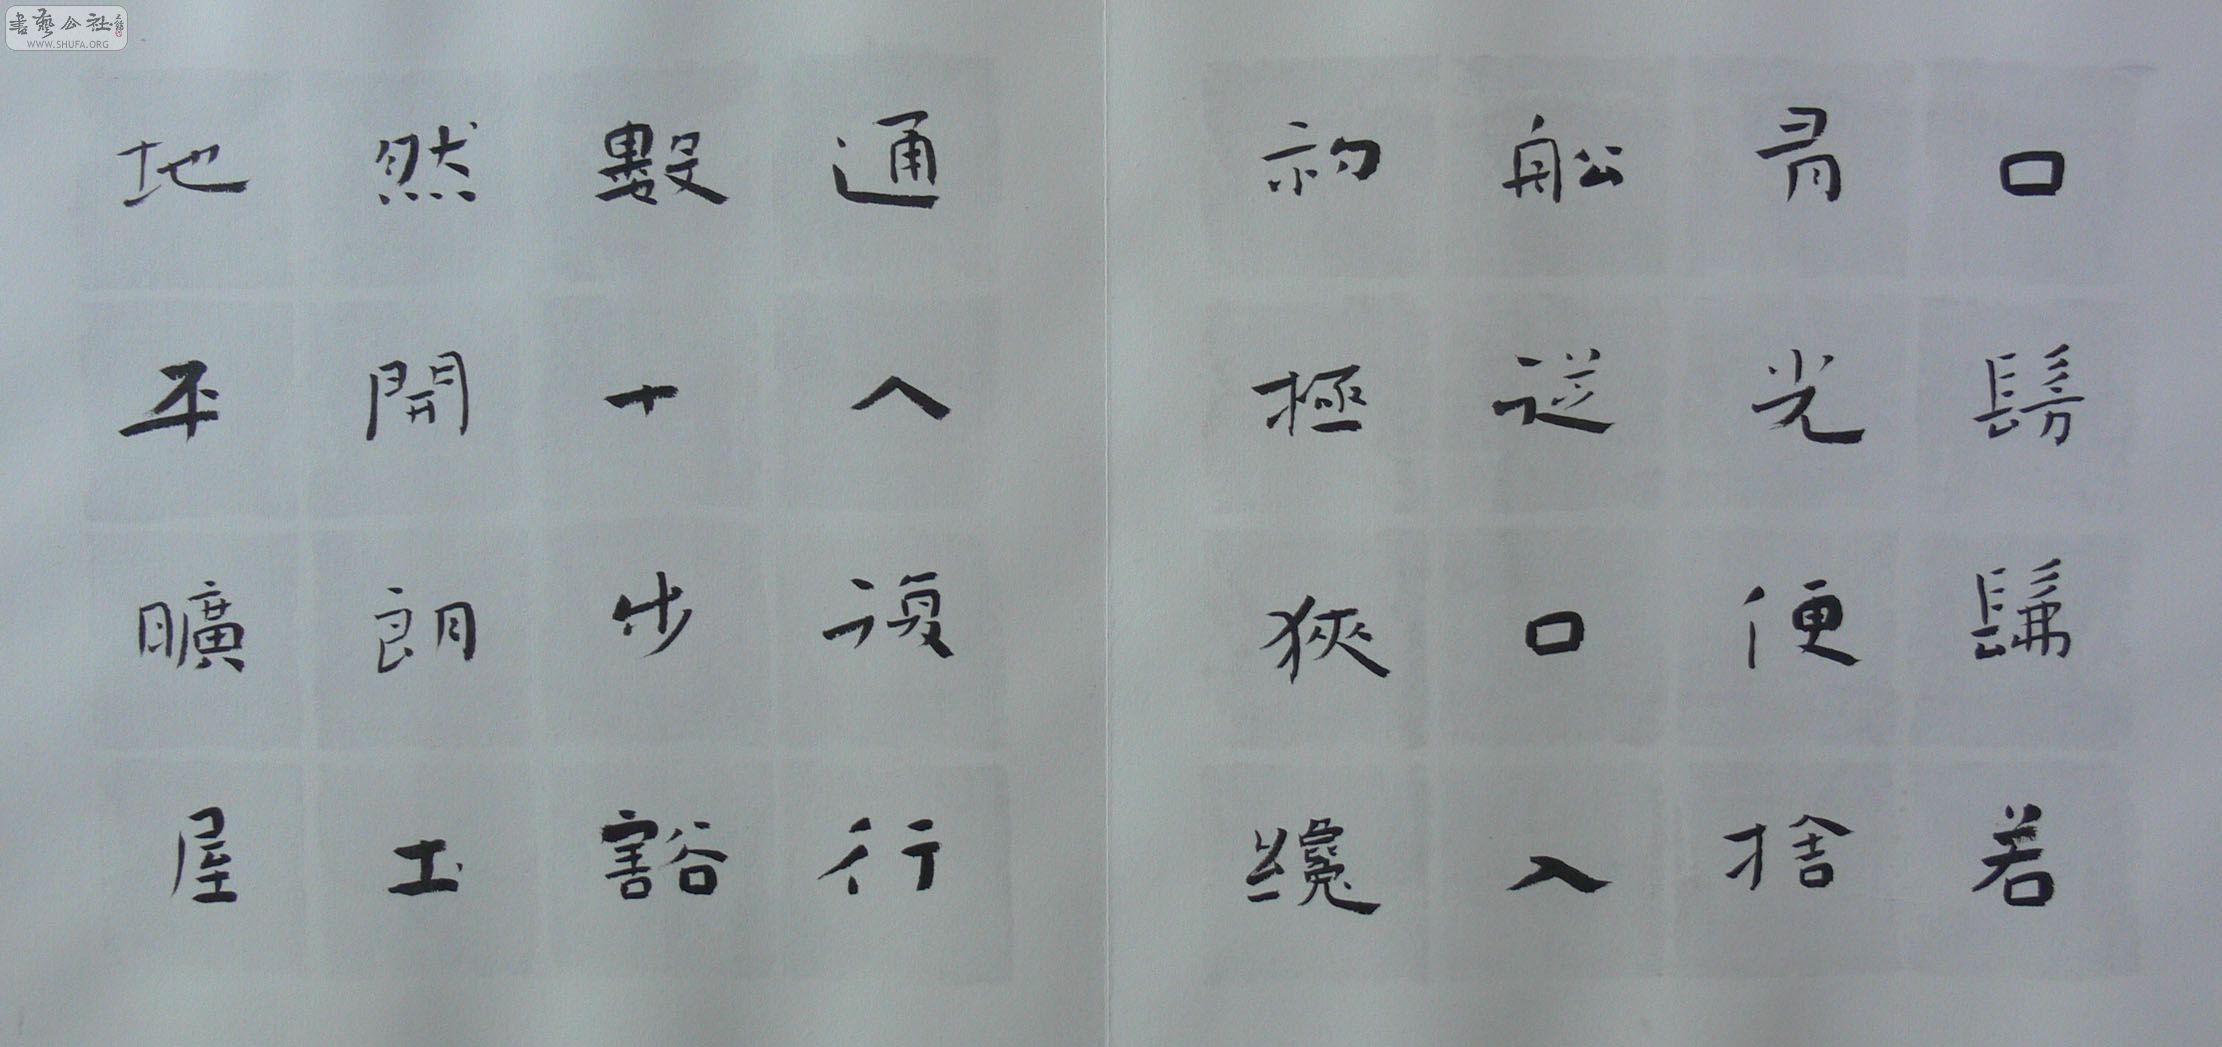 口髣髴若
有光便捨
船從口入
初極狹纔
通人復行
數十步豁
然開朗土
地平曠屋
書藝公社
WWW.SHUFA.ORG